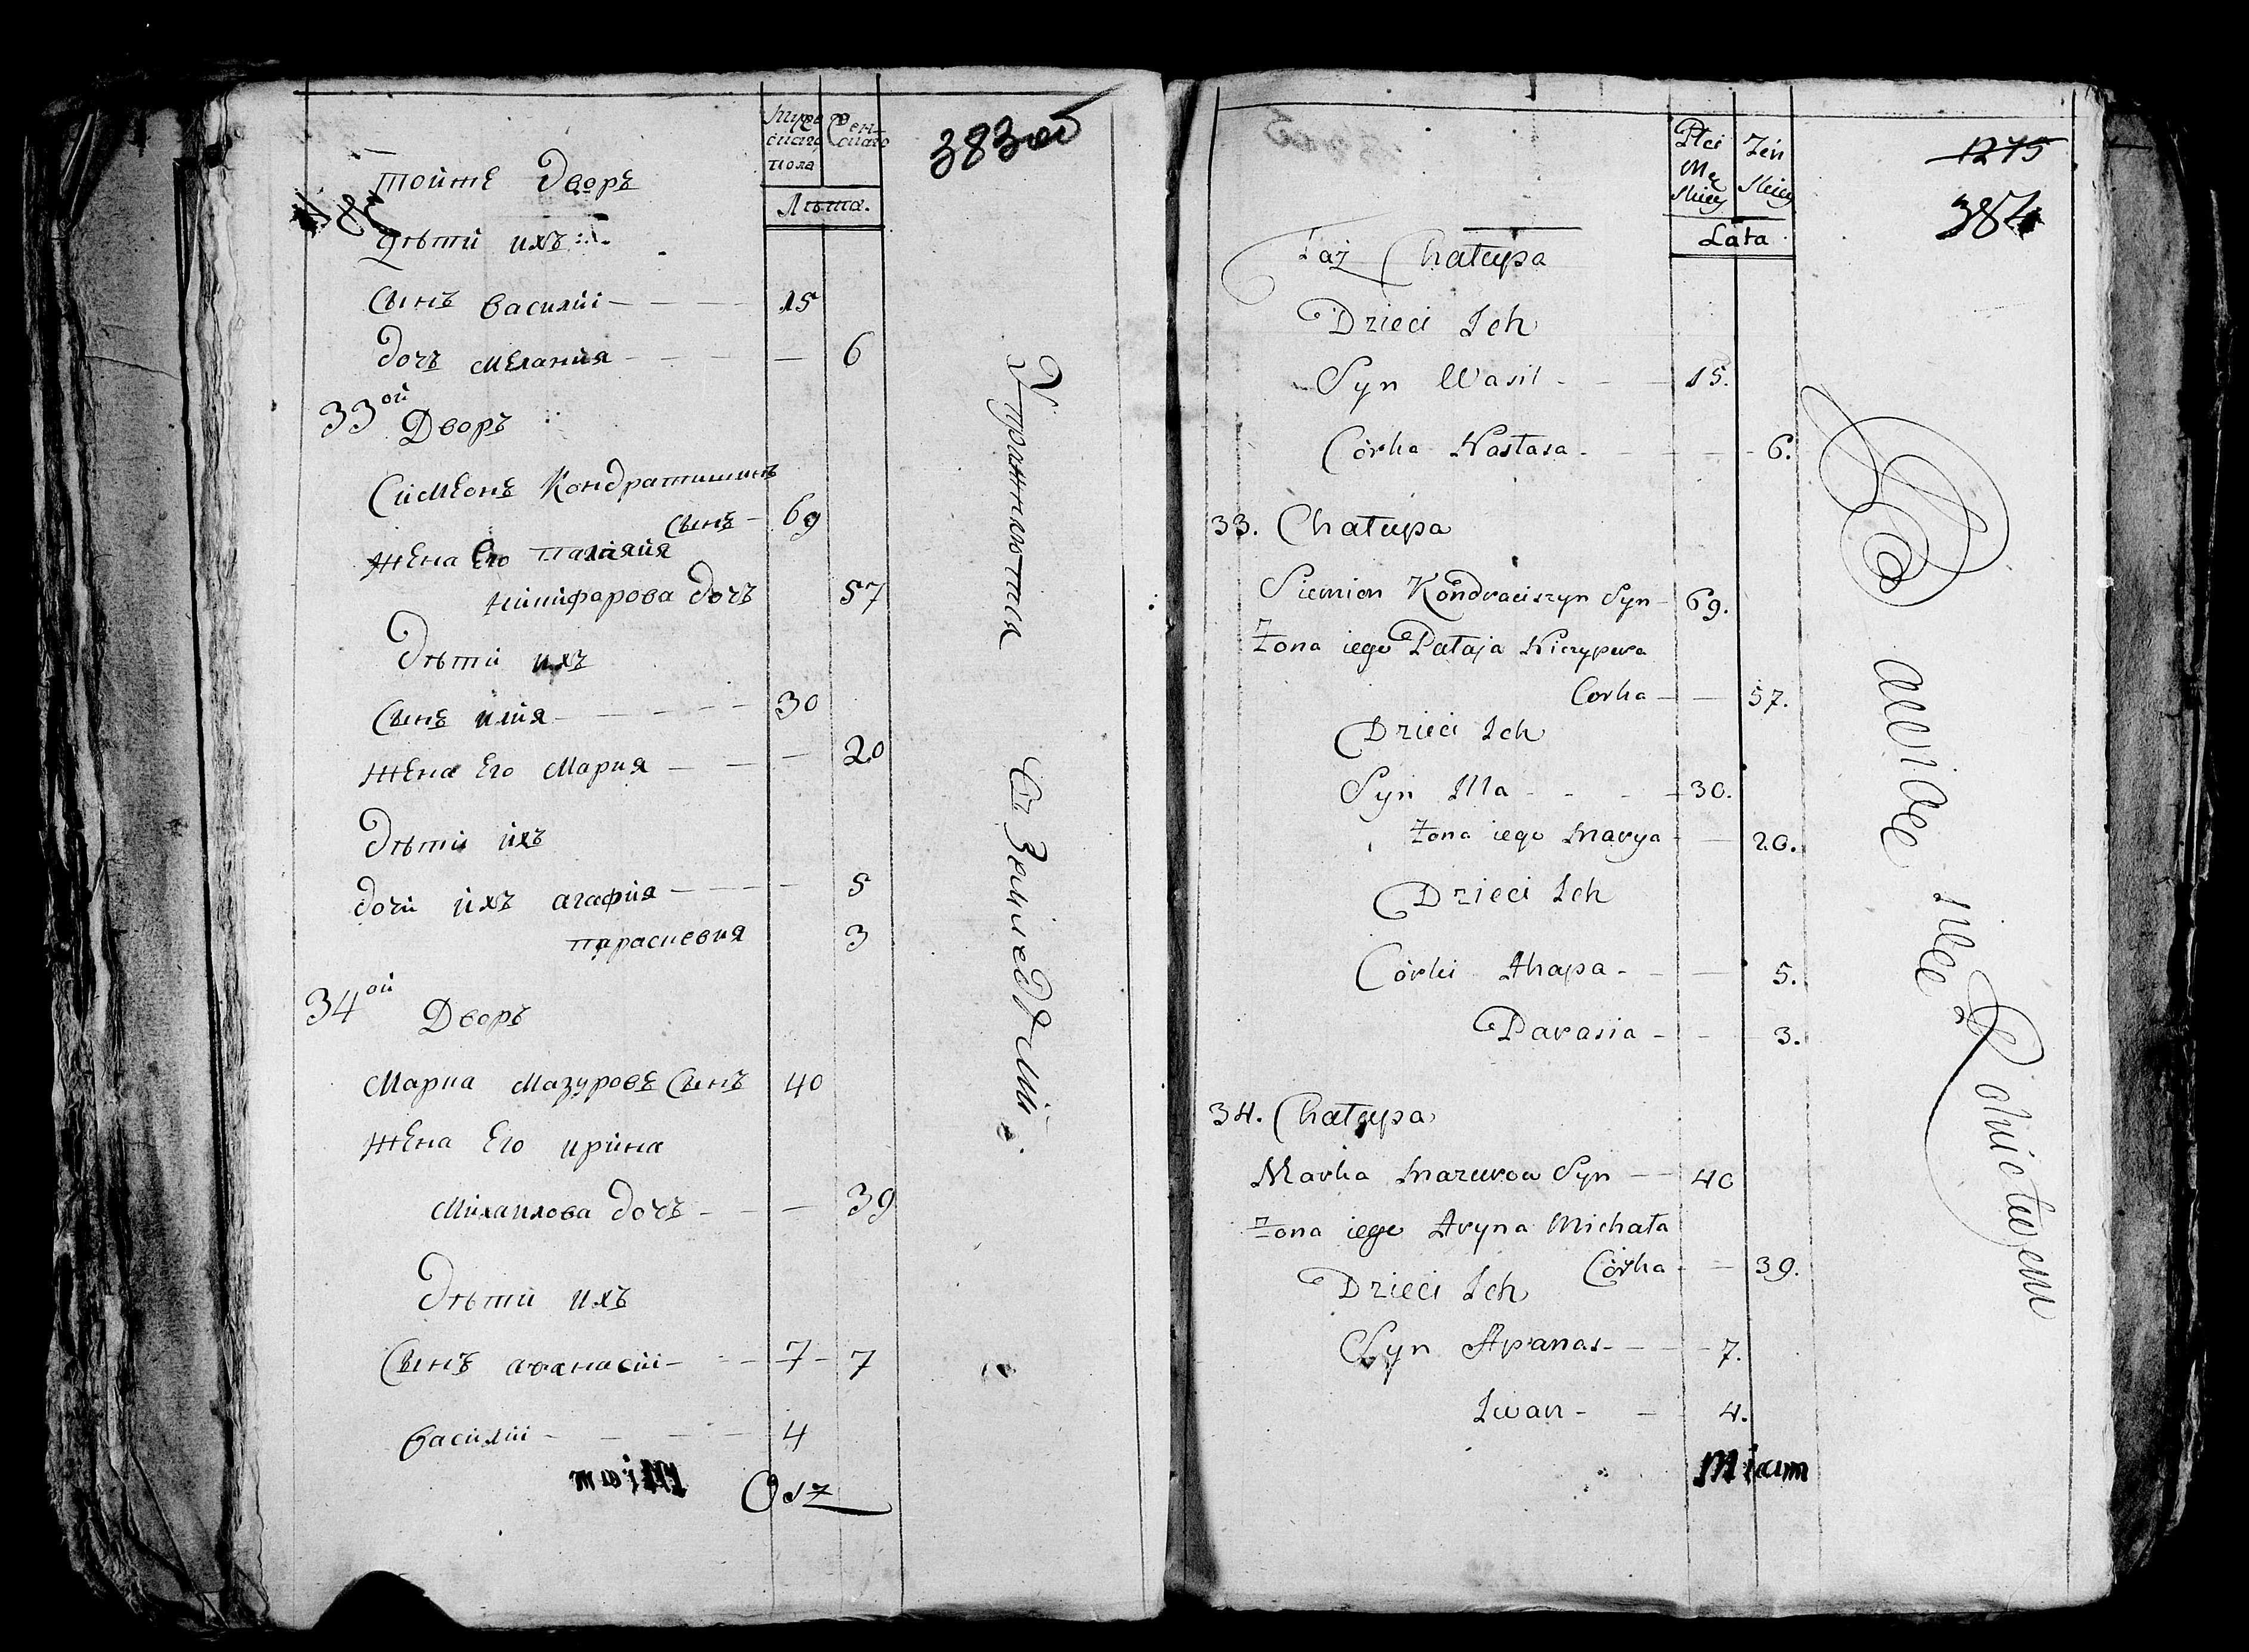 Мужескаго пола
Женскаго
Лѣта.
383 об
тойже Дворъ
Дѣти ихъ
Сынъ Василiй — — — — 15
Дочъ Меланiя — — — — 6
33ой Дворъ
Симеонъ Кондратишинъ
Сынъ — 69
Жена Его Палаяiя
Никифарова Дочъ 57
Дѣти ихъ
Сынъ илiя — — — — 30
Жена Его Мария — — — 20
Дѣти ихъ
Дочи ихъ агафiя — — — — 5
Параскевия 3
34ой Дворъ
Марка Мазуровъ Сынъ 40
Жена Его ирина
Михаилова Дочъ — — — 39
Дѣти ихъ
Сынъ аѳанасiй — — — 7 — 7
Василiй — — — — — 4
Упражняются
В Земледѣлiи.
Płci Męskiey
Żeńskiey
Lata
1275
384
Taż Chałupa
Dzieci Ich
Syn Wasil - - - 15.
Córka Nastasa - - - - - 6.
33. Chałupa
Siemion Kondraciszyn Syn - 69.
Żona iego Pałaja Niczypora
Corka — — 57.
Dzieci Ich
Syn Illa - - - - 30.
Żona iego Marya - — 20.
Dzieci Ich
Córki Ahapa - - — 5.
Parasia - - — 3.
34. Chałupa
Marka Mazurow Syn — — 40
Żona iego Aryna Michała
Córka - — 39.
Dzieci Ich
Syn Apanas - — - 7.
Iwan - - - 4.
Bawiąc się Rolnictwem